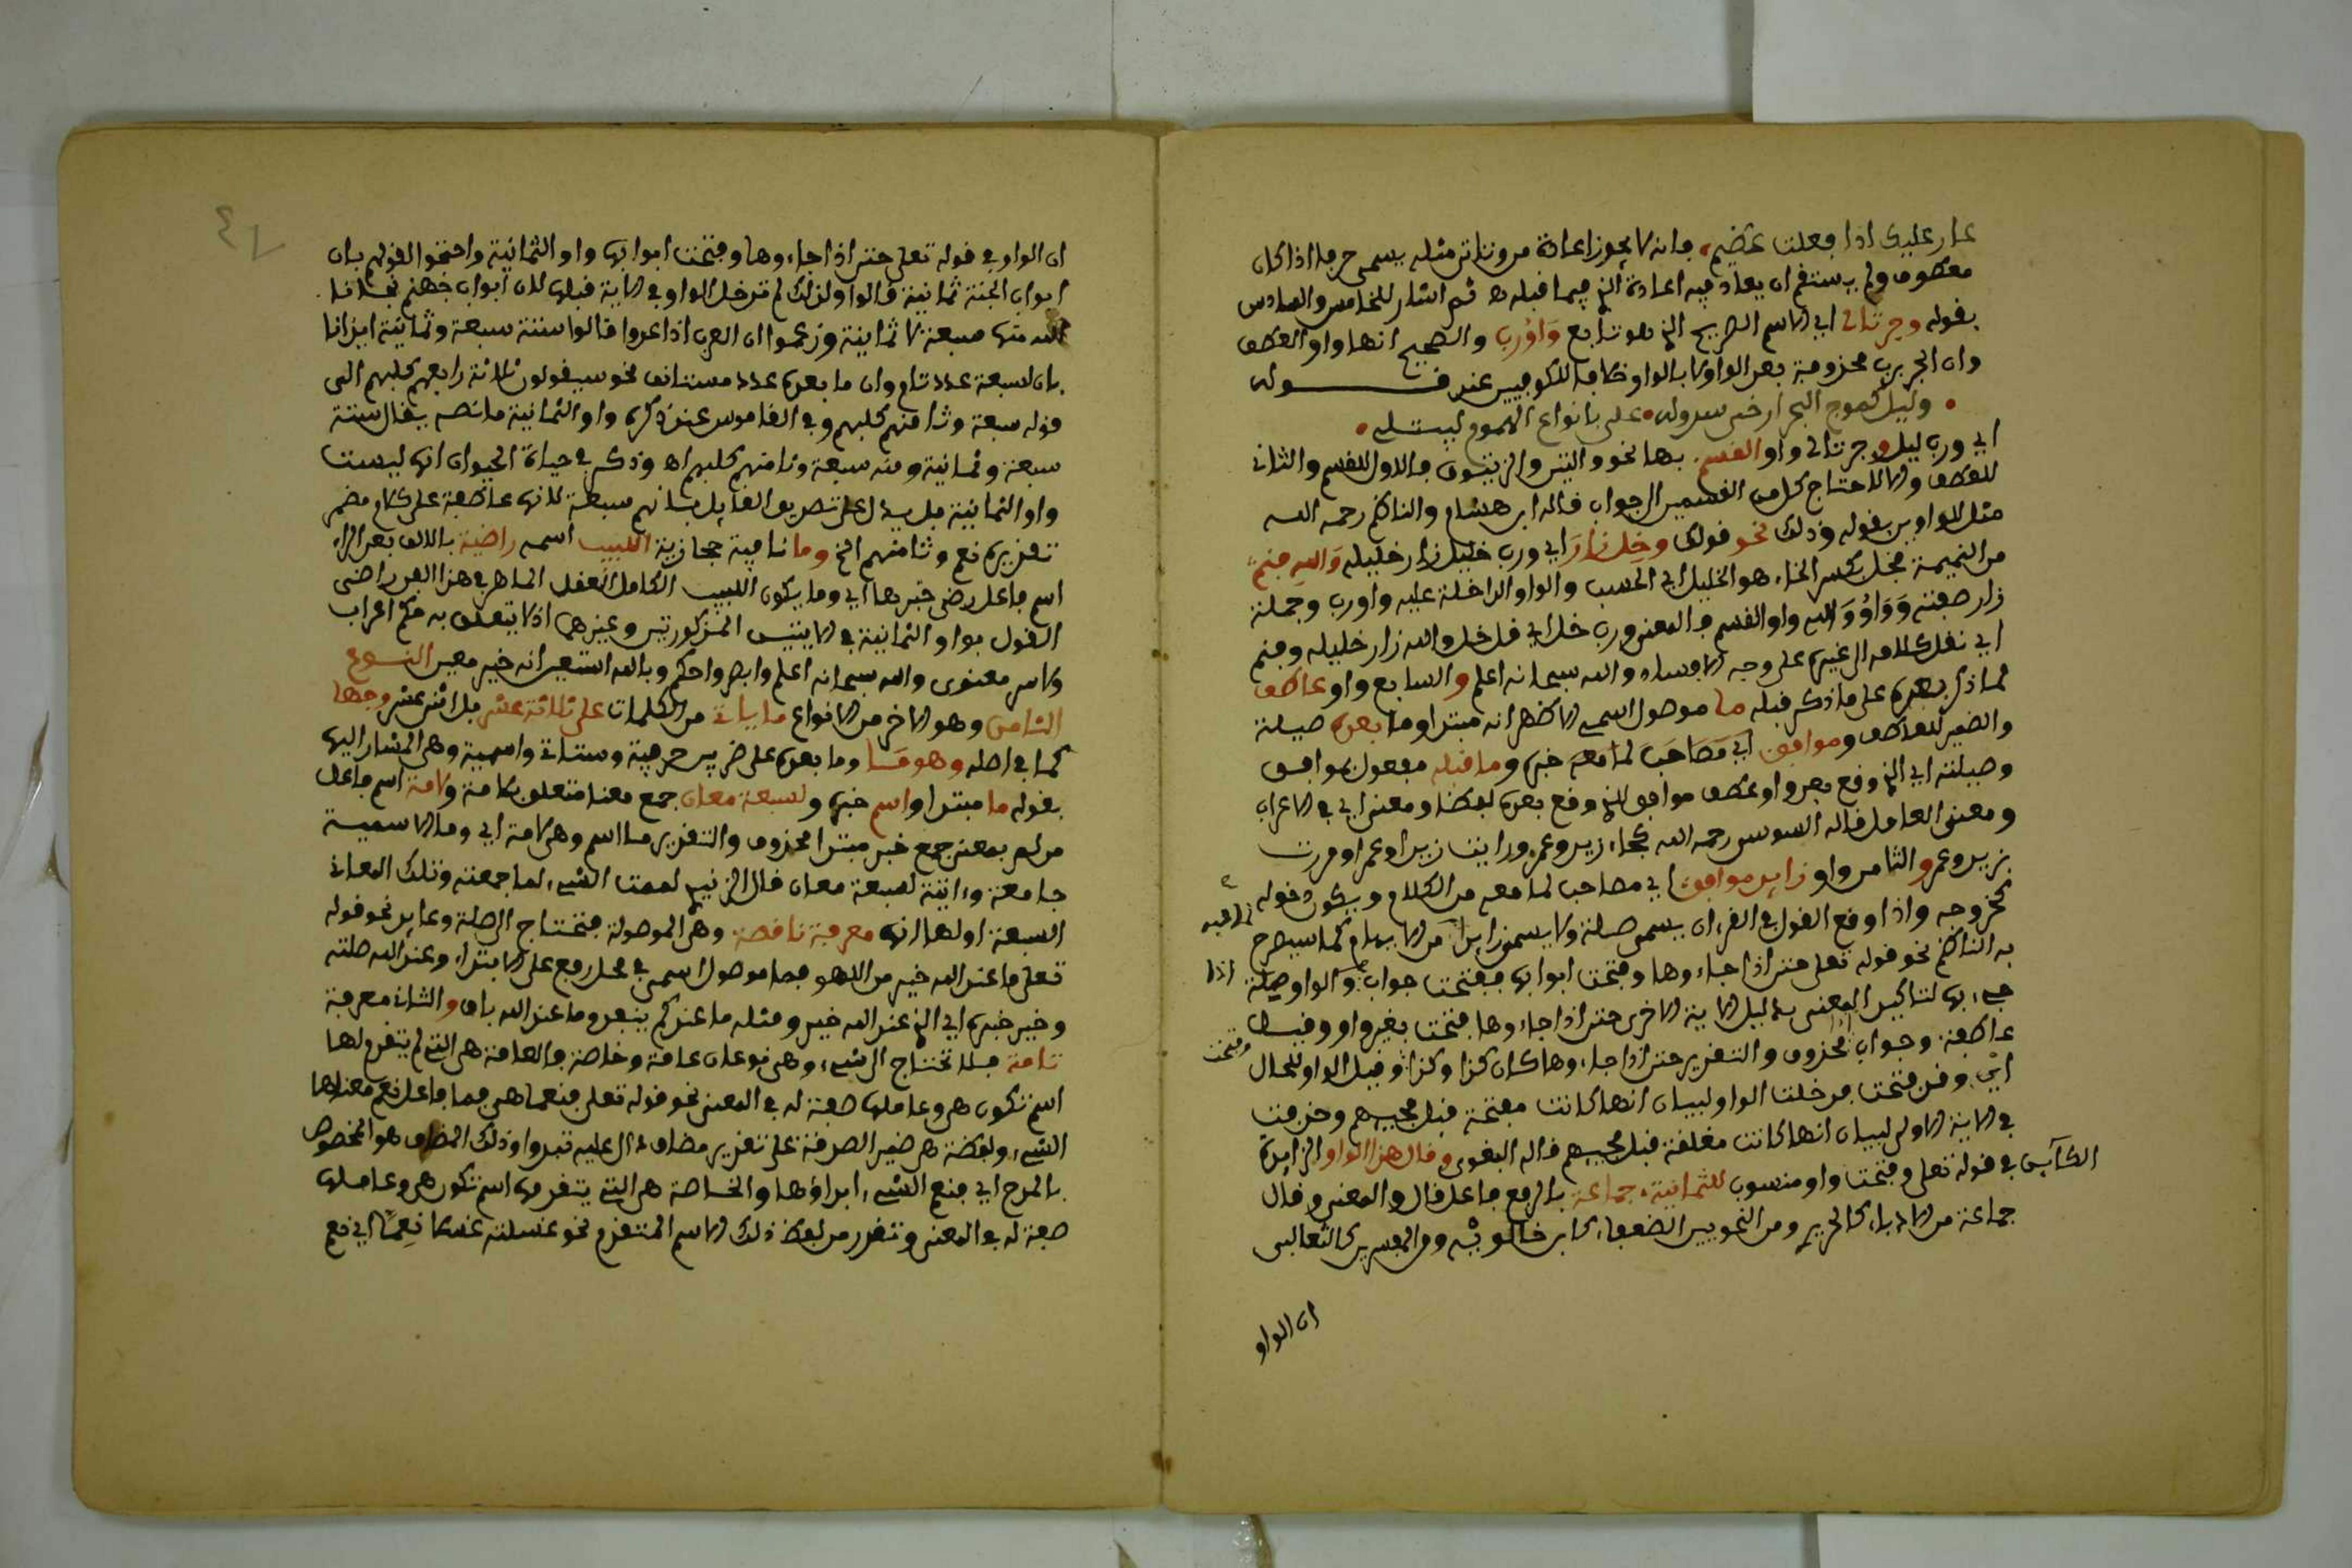 عار عليك اذا فعلت عظيم، فانه لا يجوز اعادة من وتاتي مثله يسمى حرفا اذا كان
معطوف ولم يستقم ان يعاد فيه اعادة الذي فيما قبله ثم اشار للخامس والسادس
بقوله وجر تالي اي الاسم الصريح الذي هو تابع وَاوُرب والصحيح انها واو العطف
وان الجر برب محذوفة بعد الواو لا بالواو خلافا للكوفيين عند قــــوله
• وليل كموج البحر ارخى سدوله • علي بانواع الهموم ليبتلي •
اي ورب ليل وجر تالي واو القسم. بها نحو والتين والزيتون فالاول للقسم والثاني
للعطف والا لاحتاج كل من القسمين الى جواب قاله ابن هشام والناظم رحمه الله
مثل للواوين بقوله وذلك نحو قولك وخل زار اي ورب خليل زار خليله والله فنم
من النميمة فخل بكسر الخاء هو الخليل اي الحبيب والواو الداخلة عليه واو رب وجملة
زار صفته وَوَاوُ وَالله واو القسم فالمعنى ورب خل اي قل خل والله زار خليله وفنم
اي نقل كلامه الى غيره على وجه الافساد والله سبحانه اعلم والسابع واو عاطف
لما ذكر بعده على ما ذكر قبله ما موصول اسمي الاظهر انه مبتدا وما بعده صيلة
والضمير للعاطف وموافق اي مصاحب لما معه خبره وما قبله مفعول بموافق
وصيلته اي الذي وقع بعد واو عطف موافق للذي وقع بعده لفظا ومعنى اي في الاعراب
ومعنى العامل قاله السوسي رحمه الله كجاء زيد وعمرو ورايت زيدا وعمرا ومررت
بزيد وعمرو والثامن واو زايد موافق، اي مصاحب لما معه من الكلام ويكون دخوله
كخروجه واذا وقع القول في القرءان يسمى صلة ولا يسمى زايدا من الايهام كما سيصرح
به الناظم نحو قوله تعلى حتى اذا جاءوها وفتحت ابوابها ففتحت جواب والواو صلة اذا
جيء بها لتاكيد المعنى بدليل الاية الاخرى حتى اذا جاءوها فتحت بغير واو وقيل
عاطفة. وجواب اذا محذوف والتقدير حتى اذا جاءوها كان كذا وكذا وقيل الواو للحال
اي وقد فتحت فدخلت الواو لبيان انها كانت مفتحة قبل مجيهم وحذفت
في الاية الاولى لبيان انها كانت مغلقة قبل مجيهم قاله البغوي وقال هذا الواو الزايدة
الكآين في قوله تعلى وفتحت واو منسوب للثمانية، جماعة بالرفع فاعل قال والمعنى وقال
جماعة من الادباء كالحريري ومن النحويين الضعفاء كابن خالويه ومن المفسرين كالثعالبي
وفتحت
ان الواو
ان الواو في قوله تعلى حتى اذا جاءوها وفتحت ابوابها واو الثمانية واحتجوا لقولهم بان
ابواب الجنة ثمانية قالوا ولذلك لم تدخل الواو في الاية قبلها لان ابواب جهنم نجانا
الله منها سبعة لا ثمانية وزعموا ان العرب اذا عدوا قالوا ستة سبعة وثمانية ايذانا
بان السبعة عدد تام وان ما بعده عدد مستانف نحو سيقولون ثلاثة رابعهم كلبهم الى
قوله سبعة وثامنهم كلبهم وفي القاموس عند ذكره واو الثمانية ما نصه يقال ستة
سبعة وثمانية ومنه سبعة وثامنهم كلبهم اه وذكر في حياة الحيوان انها ليست
واو الثمانية بل يدل على تصديق القايل بانهم سبعة لانها عاطفة على كلام مضمر
تقديره نعم وثامنهم الخ وما نافية حجازية اللبيب اسمه راضية بالالف بعد الراء
اسم فاعل رضي خبرها اي وما يكون اللبيب الكامل العقل الماهر في هذا الفن راضي
القول بواو الثمانية في الايتين المذكورتين وغيرهما اذ لا يتعلق به حكم اعراب
ولا سر معنوي والله سبحانه اعلم وابصر واحكم وبالله استعين انه خير معين النوع
الثامن وهو الاخر من الانواع ما ياتي من الكلمات على ثلاثة عشر بل اثني عشر وجها
كما في اصله وهو مَــا وما بعده على ضربين حرفية وستاتي واسمية وهي المشار اليها
بقوله ما مبتدا واسم خبره ولسبعة معان جمع معنا متعلق بلامة ولامة اسم فاعل
من لم بمعنى جمع خبر مبتدا محذوف والتقدير ما اسم وهي لامة اي وما الاسمية
جامعة وءاتية لسبعة معان قال الزبيدي لممت الشيء لما جمعته وتلك المعاني
السبعة اولها انها معرفة ناقصة. وهي الموصولة فتحتاج الى صلة وعايد نحو قوله
تعلى ما عند الله خير من اللهو فما موصول اسمي في محل رفع على الابتداء وعند الله صلته
وخير خبره اي الذي عند الله خير ومثله ما عندكم ينفد وما عند الله باق والثاني معرفة
تامة فلا تحتاج الى شيء، وهي نوعان عامة وخاصة فالعامة هي التي لم يتقدم لها
اسم تكون هي وعاملها صفة له في المعنى نحو قوله تعلى فنعما هي فما فاعل نعم معناها
الشيء، ولفظة هي ضمير الصدقة على تقدير مضاف دال عليه تبدوا وذلك المضاف هو المخصوص
بالمدح اي فنعم الشيء ابداؤها والخاصة هي التي يتقدمها اسم تكون هي وعاملها
صفة له في المعنى وتقدر من لفظ ذلك الاسم المتقدم نحو غسلته غسلا نعمّا اي نعم